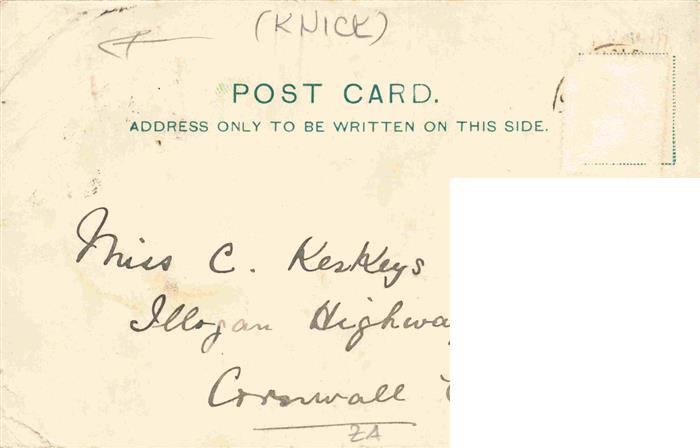 (KNICK)
POST CARD.
ADDRESS ONLY TO BE WRITTEN ON THIS SIDE.
Miss C. KesKeys
Illogan
Cornwall
ZA